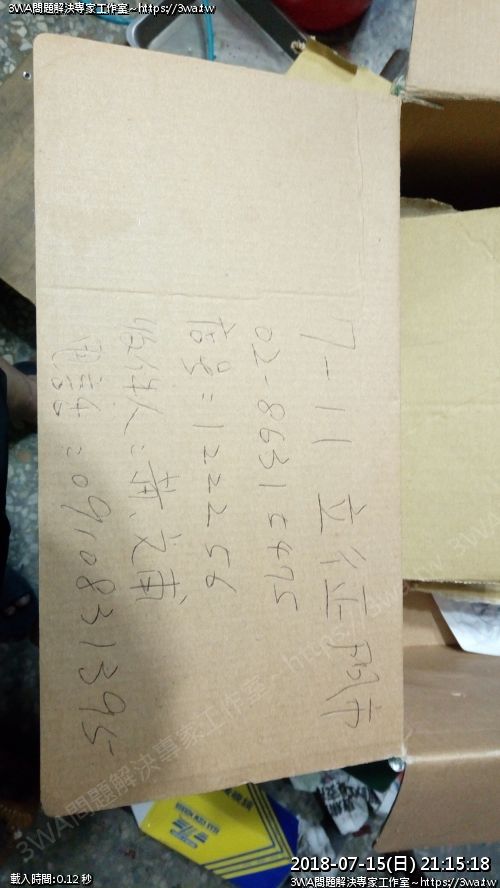 3WA問題解決專家工作室~https://3wa.tw
3WA問題解決專家工作室~https://3wa.tw
7-11 立行亚門市
02-86315475
店号:122256
收件人:黃文甫
電話:0910831395
3WA問題解決專家工作室~https://3wa.tw
載入時間:0.12 秒
2018-07-15(日) 21:15:18
3WA問題解決專家工作室~https://3wa.tw